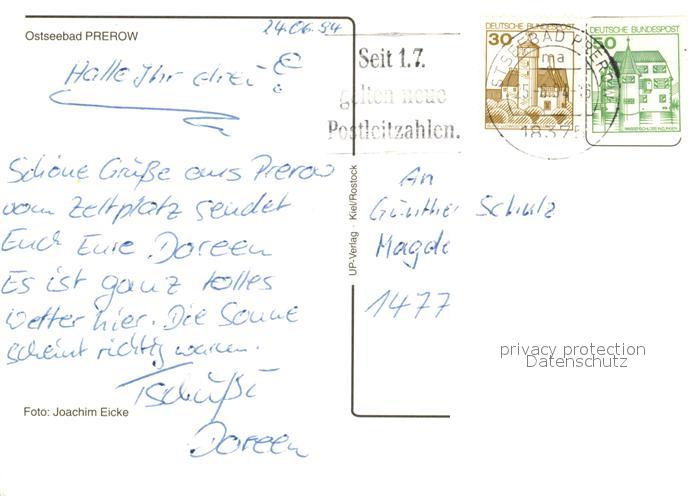 Ostseebad PREROW
24.06.94
Hallo Ihr drei!
Schöne Grüße aus Prerow
vom Zeltplatz sendet
Euch Eure Doreen
Es ist ganz tolles
Wetter hier. Die Sonne
scheint richtig warm.
Tschüßi
Doreen
Foto: Joachim Eicke
UP-Verlag · Kiel/Rostock
Seit 1.7.
gelten neue
Postleitzahlen.
OSTSEEBAD PREROW
ma
1837
DEUTSCHE BUNDESPOST
30
DEUTSCHE BUNDESPOST
50
WASSERSCHLOSS INZLINGEN
An
Günther Schulz
Magde
1477
privacy protection
Datenschutz